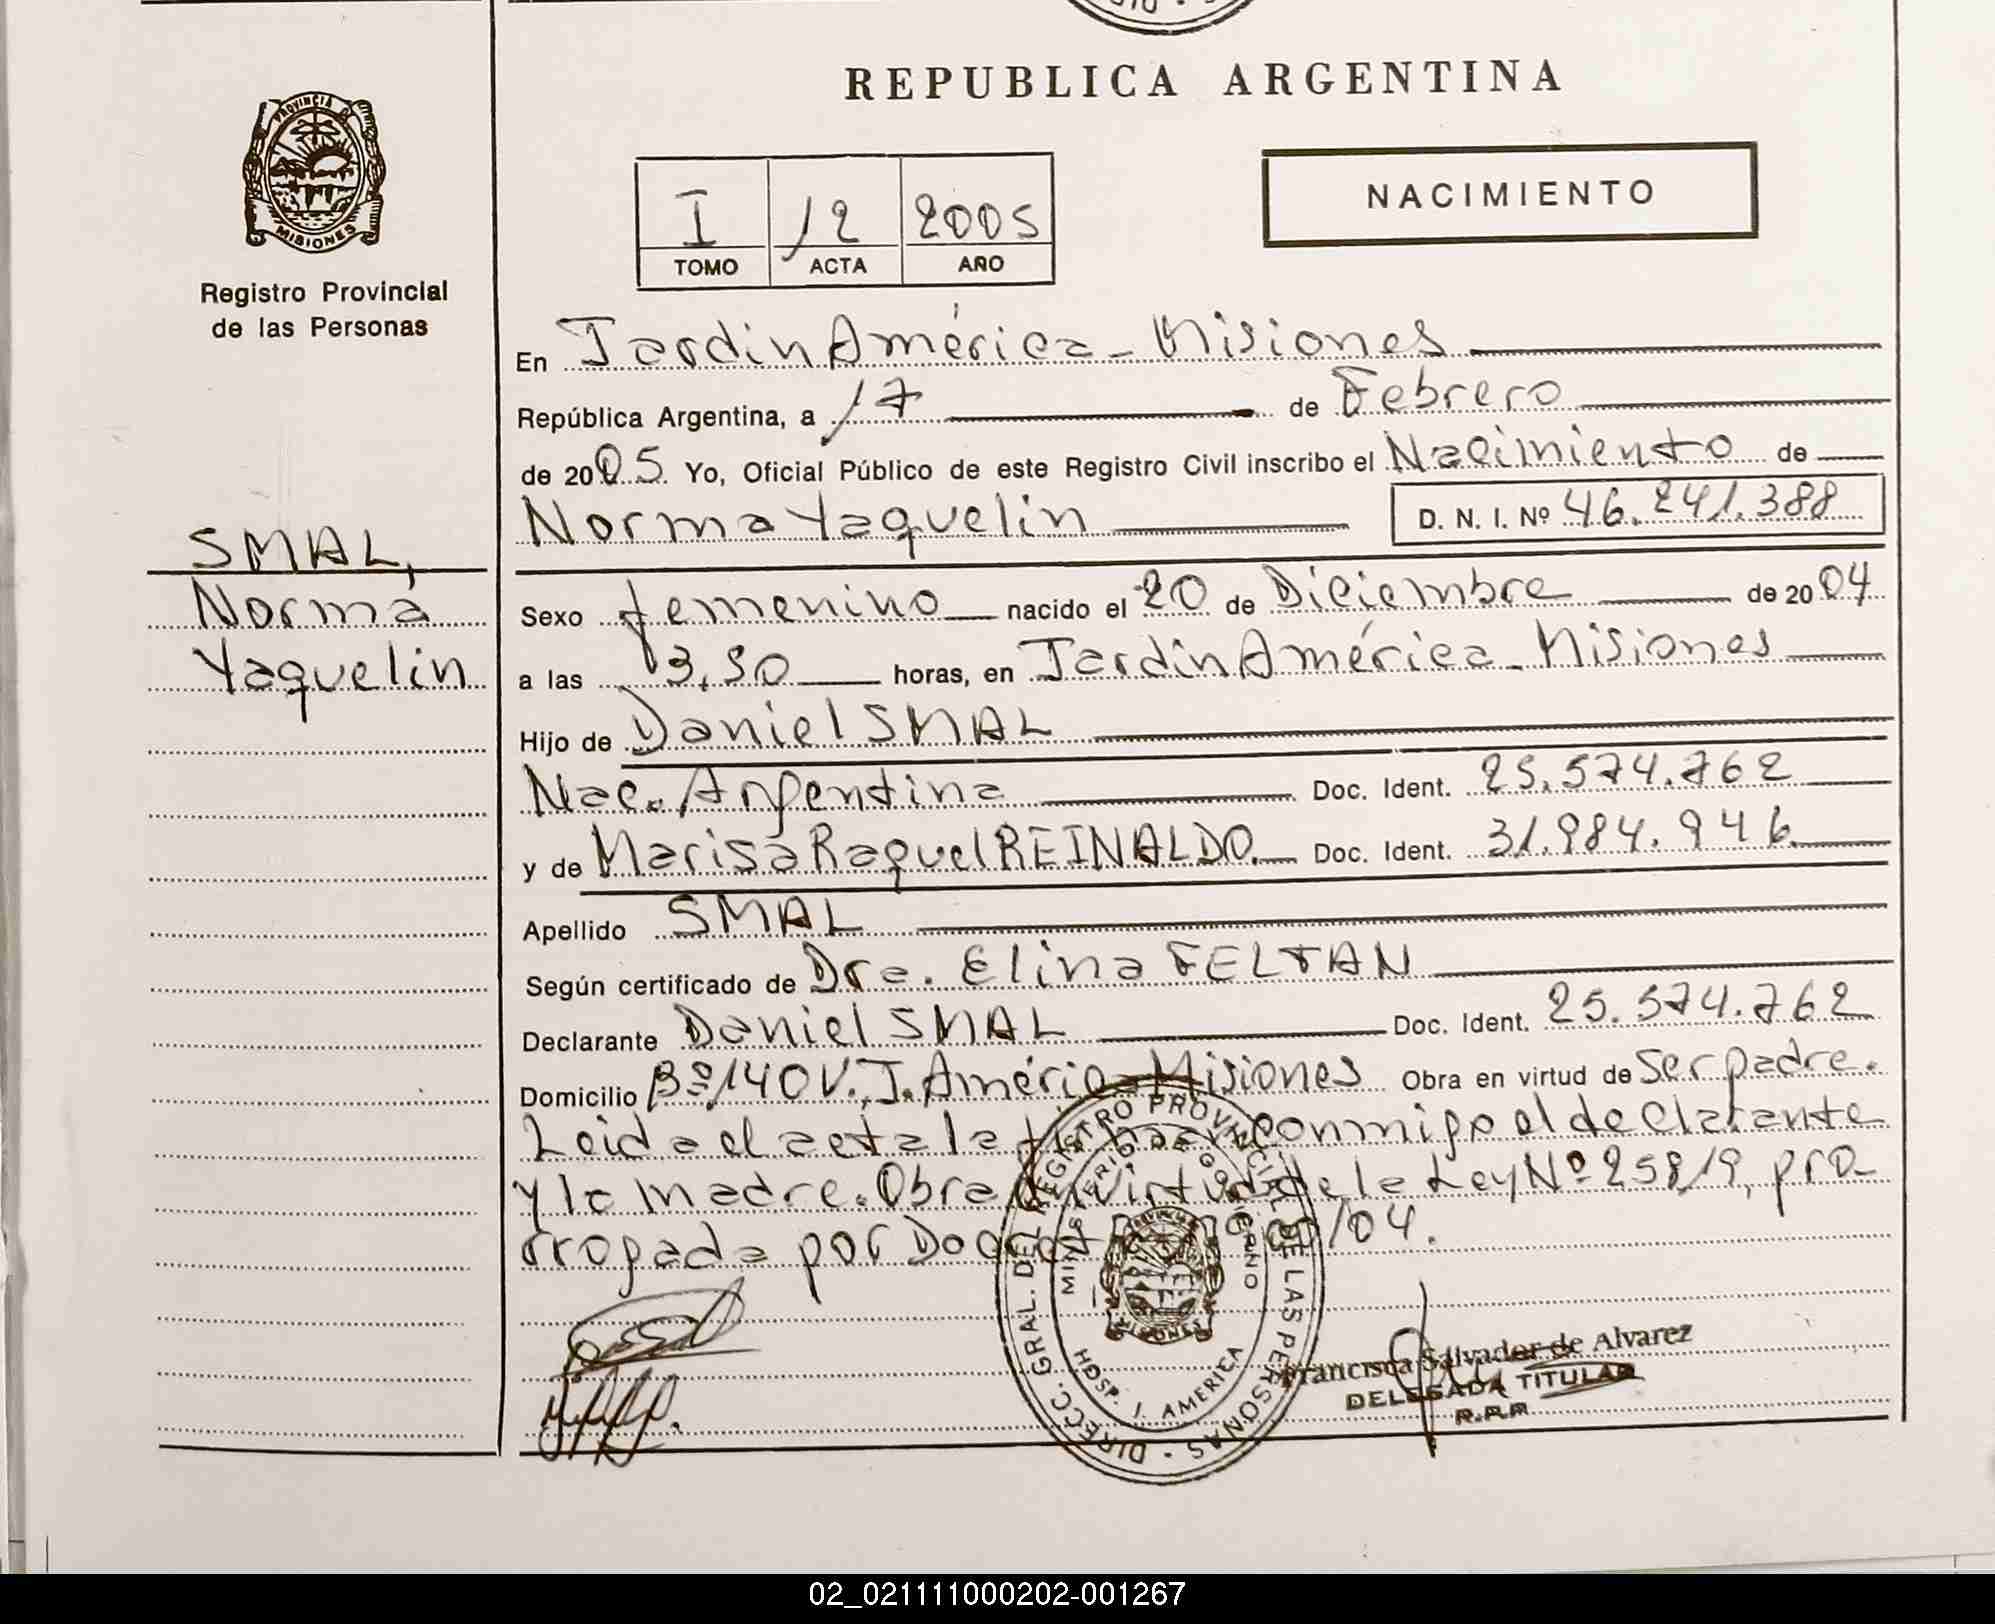 REPUBLICA ARGENTINA
PROVINCIA
MISIONES
Registro Provincial
de las Personas
NACIMIENTO
I 12 2005
TOMO ACTA AÑO
En Jardin América - Misiones
República Argentina, a 17 de Febrero
de 2005. Yo, Oficial Público de este Registro Civil inscribo el Nacimiento de
Norma Yaquelin D. N. I. Nº 46.241.388
SMAL,
Norma
Yaquelin
Sexo femenino nacido el 20 de Diciembre de 2004
a las 13,50 horas, en Jardin América - Misiones
Hijo de Daniel SMAL
Nac. Argentina Doc. Ident. 25.574.762
y de Marisa Raquel REINALDO. Doc. Ident. 31.984.946.
Apellido SMAL
Según certificado de Dra. Elina FELTAN
Declarante Daniel SMAL Doc. Ident. 25.574.762
Domicilio Bº 140 V. J. América - Misiones Obra en virtud de ser padre.
Leida el acta la firman conmigo el declarante
y la madre. Obra en virtud de la Ley Nº 25819, pro-
rrogada por /04.
DIRECC. GRAL. DEL REGISTRO PROVINCIAL DE LAS PERSONAS
MINISTERIO DE GOBIERNO
HOSP. J. AMERICA
Francisca Salvador de Alvarez
DELEGADA TITULAR
R.P.P
02_021111000202-001267